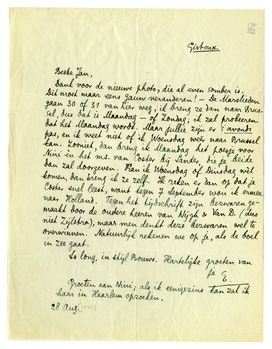 Gistoux.
Beste Jan,
Dank voor de nieuwe photo, die al even somber is.
Dit moet maar eens gauw veranderen! — De Marolieden
gaan 30 of 31 van hier weg, ik breng ze dan naar Brus-
sel, dus dat is Maandag – of Zondag; ik zal probeeren
dat het Maandag wordt. Maar jullie zijn er 's avonds
pas, en ik weet niet of ik Woensdag wéér naar Brussel
kan. Zooniet, dan breng ik Maandag het potje voor
Nini en het ms. van Coster bij Sander, die je beide
dan zal doorgeven. Kan ik Woensdag of Dinsdag wél
komen, dan breng ik ze zelf. Ik reken er dan op dat je
Coster snel leest, want tegen 7 September wou ik ermee
naar Holland. Tegen het tijdschrift zijn bezwaren ge-
maakt door de oudere heeren van Nijgh & Van D. (dus
niet Zijlstra), maar men denkt deze bezwaren wel te
overwinnen. Natuurlijk rekenen we op je, als de boel
in zee gaat.
So long, in stijl Bouws. Hartelijke groeten van
je E.
Groeten aan Nini; als ik eenigszins kan zal ik
haar in Haarlem opzoeken.
28 Aug.